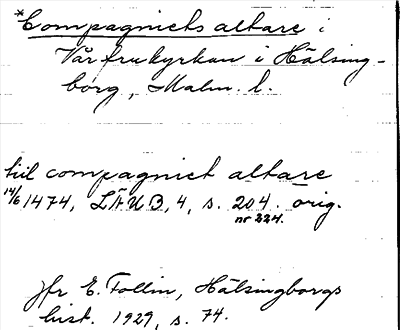 *Compagniets altare i
Vår frukyrkan i Hälsing-
borg, Malm. l.
till compagniet altare
14/6 1474, LÄUB, 4, s. 204. orig.
nr 224.
Jfr E. Follin, Hälsingborgs
hist. 1929, s. 74.